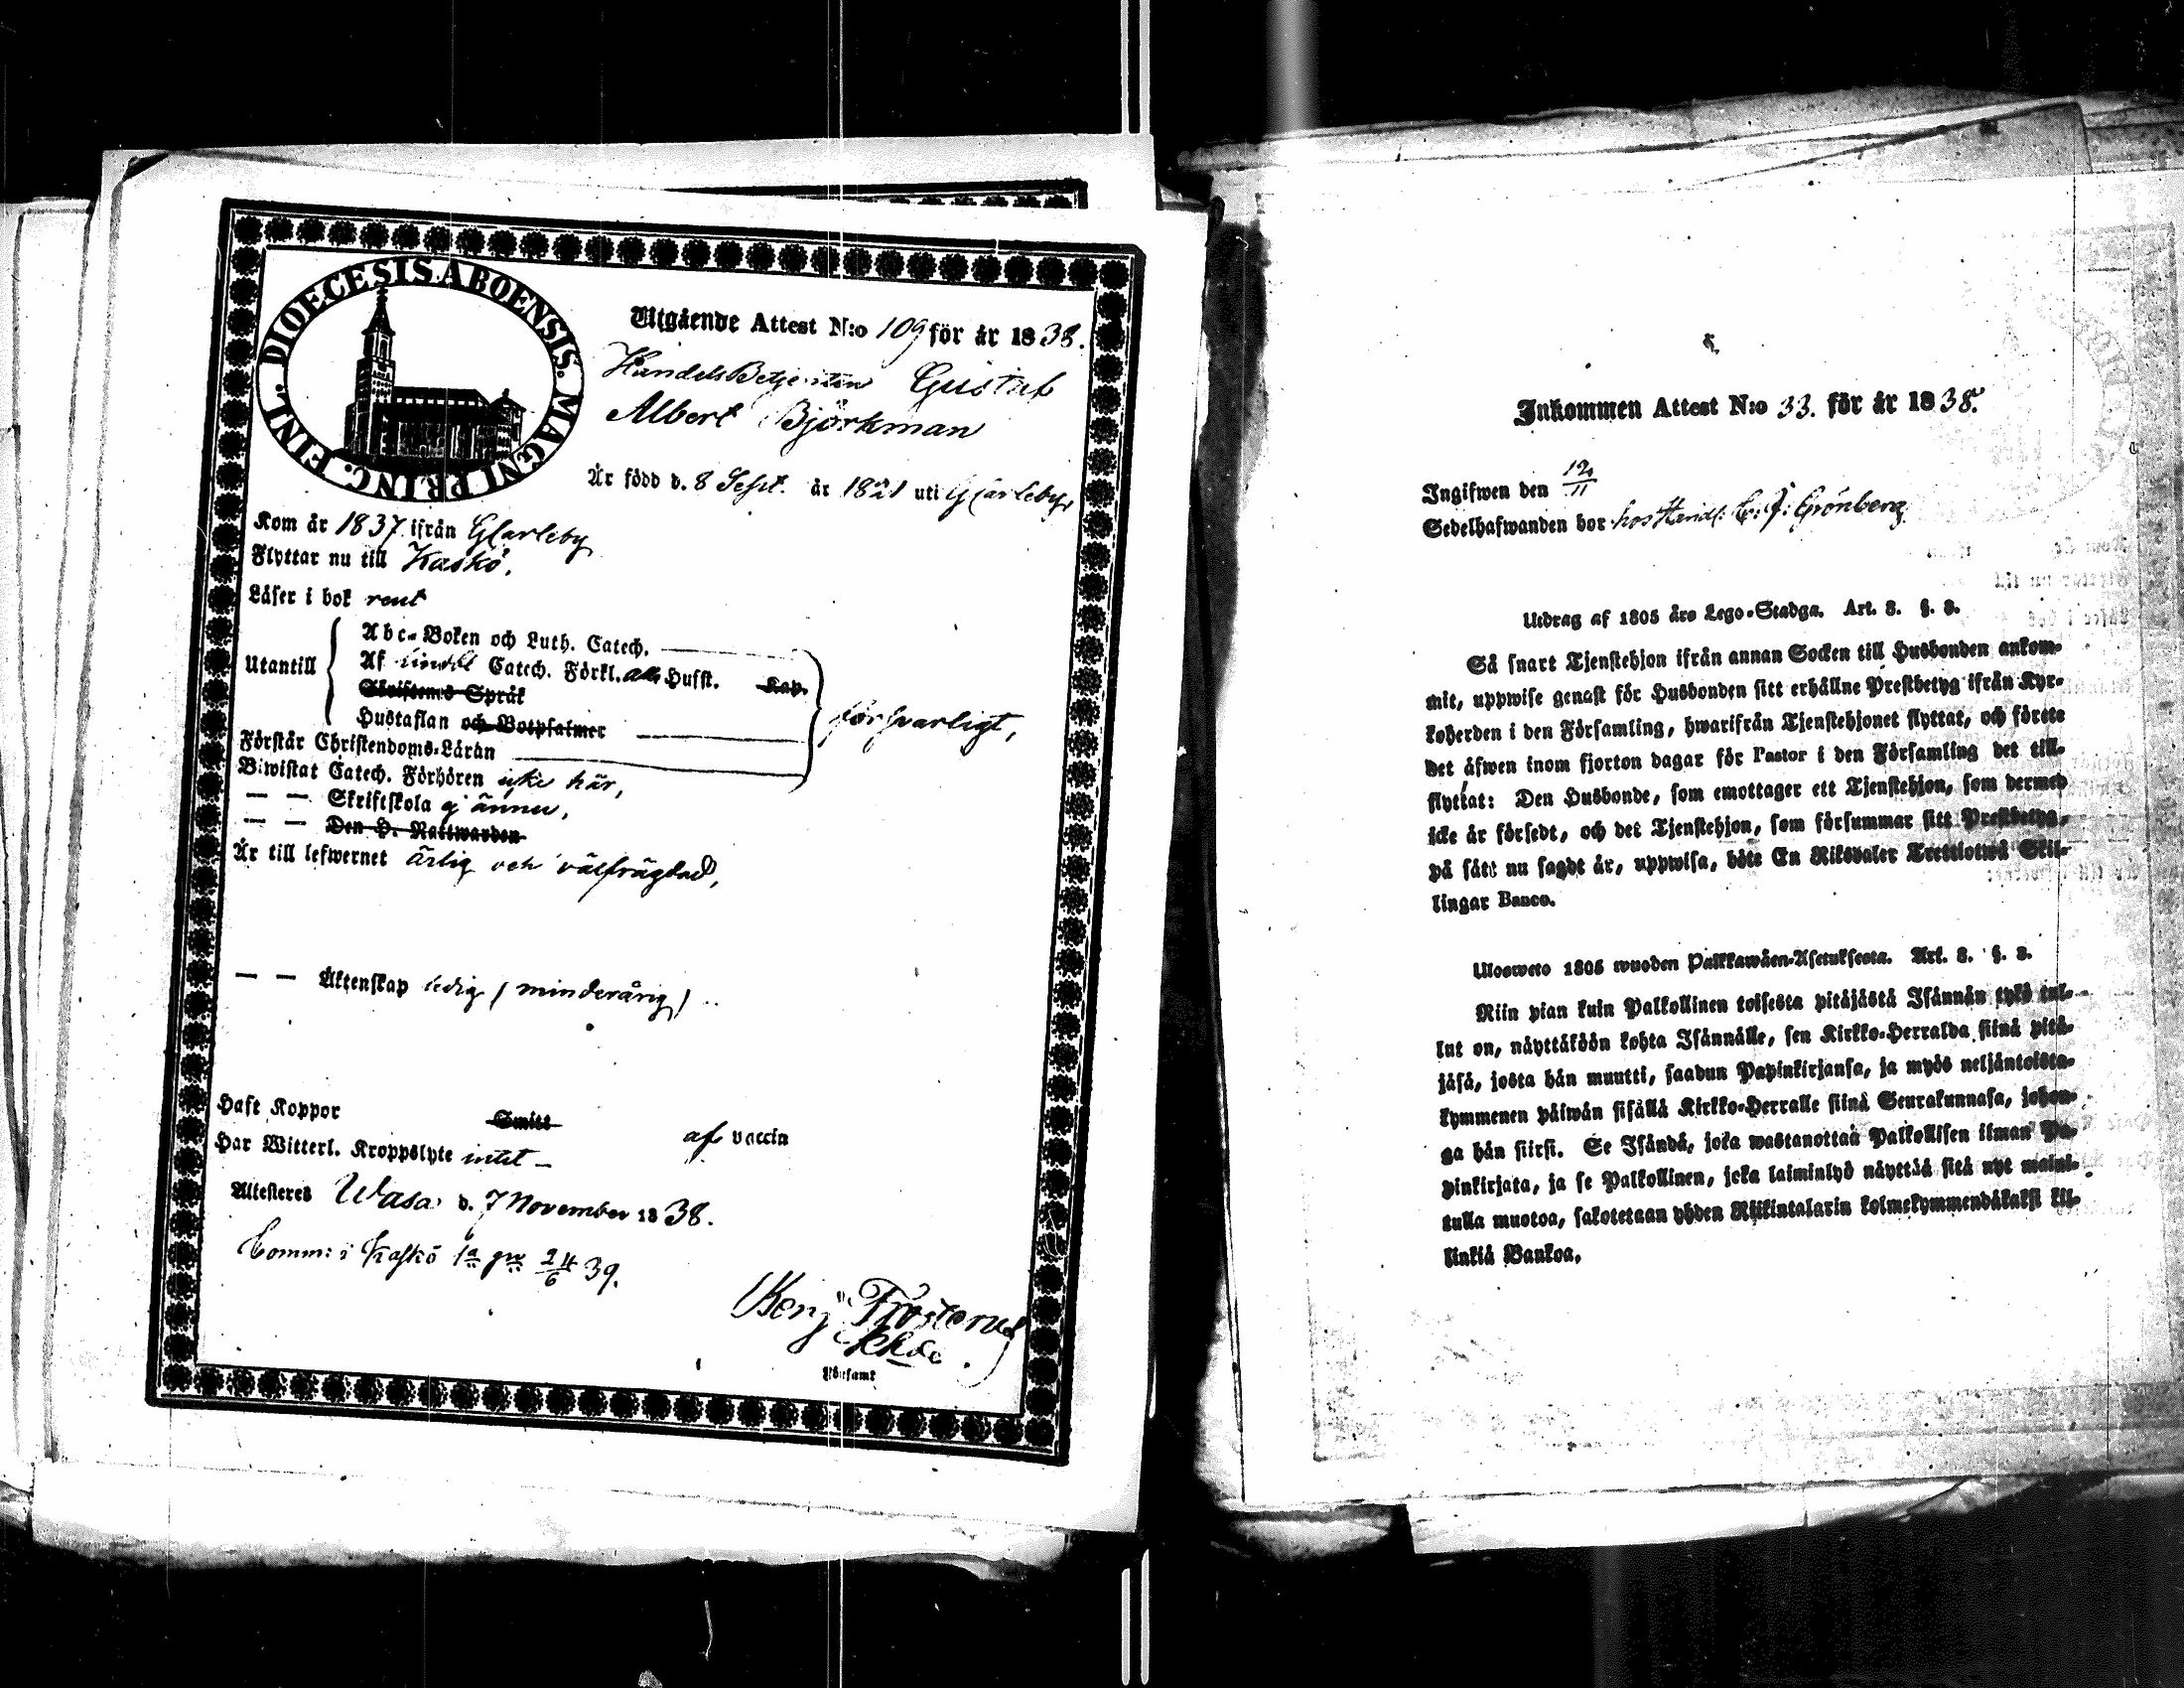 DIOECESIS ABOENSIS. MAGNI PRINC. FINL.
Utgående Attest N:o 109 för år 1838.
HandelsBetjenten Gustaf
Albert Björkman
Är född d. 8 Sept. år 1821 uti Gcarleby,
Kom år 1837 ifrån Gcarleby
Flyttar nu till Kaskö.
Läser i bok rent
Utantill
Abc-Boken och Luth. Catech.
Af Catech. Förkl. Husst. Kap.
Skriftenes Språk
Hustaflan och Botpsalmer
försvarligt,
Förstår Christendoms-Läran
Biwistat Catech. Förhören här,
— — Skriftskola ej ännu,
— — Den H. Nattwarden
Är till lefwernet ärlig och välfrägdad,
— — Äktenskap ledig / minderårig /
Haft Koppor Smitt af vaccin
Har Witterl. Kroppslyte intet —
Attesteres Wasa d. 7 November 1838.
Comm: i Kaskö 1a 24/6 39.
Benj. Frosterus
Församl
Inkommen Attest N:o 33. för år 1838.
Ingifwen den 12/11
Sedelhafwanden bor hos Handl: C. J: Grönberg
Utdrag af 1805 års Lego-Stadga. Art. 3. §. 3.
Så snart Tjenstehjon ifrån annan Socken till Husbonden ankom-
mit, uppwise genast för Husbonden sitt erhållne Prestbetyg ifrån Kyr-
koherden i den Församling, hwarifrån Tjenstehjonet flyttat, och förete
det äfwen inom fjorton dagar för Pastor i den Församling det till-
flyttat: Den Husbonde, som emottager ett Tjenstehjon, som dermed
icke är försedt, och det Tjenstehjon, som försummar sitt Prestbetyg,
på sätt nu sagdt är, uppwisa, böte En Riksdaler Trettiotwå Skil-
lingar Banco.
Ulosweto 1805 wuoden Palkkawäen-Asetuksesta. Art. 3. §. 3.
Niin pian kuin Palkollinen toisesta pitäjästä Isännän tykö tul-
lut on, näyttäköön kohta Isännälle, sen Kirkko-Herralda siinä pitä-
jäsä, josta hän muutti, saadun Papinkirjansa, ja myös neljäntoista-
kymmenen päiwän sisällä Kirkko-Herralle siinä Seurakunnasa, johon-
ga hän siirsi. Se Isändä, joka wastanottaa Palkollisen ilman Pa-
pinkirjata, ja se Palkollinen, joka laiminlyö näyttää sitä nyt maini-
tulla muotoa, sakotetaan yhden Riikintalarin kolmekymmendäkaksi kil-
linkiä Bankoa.